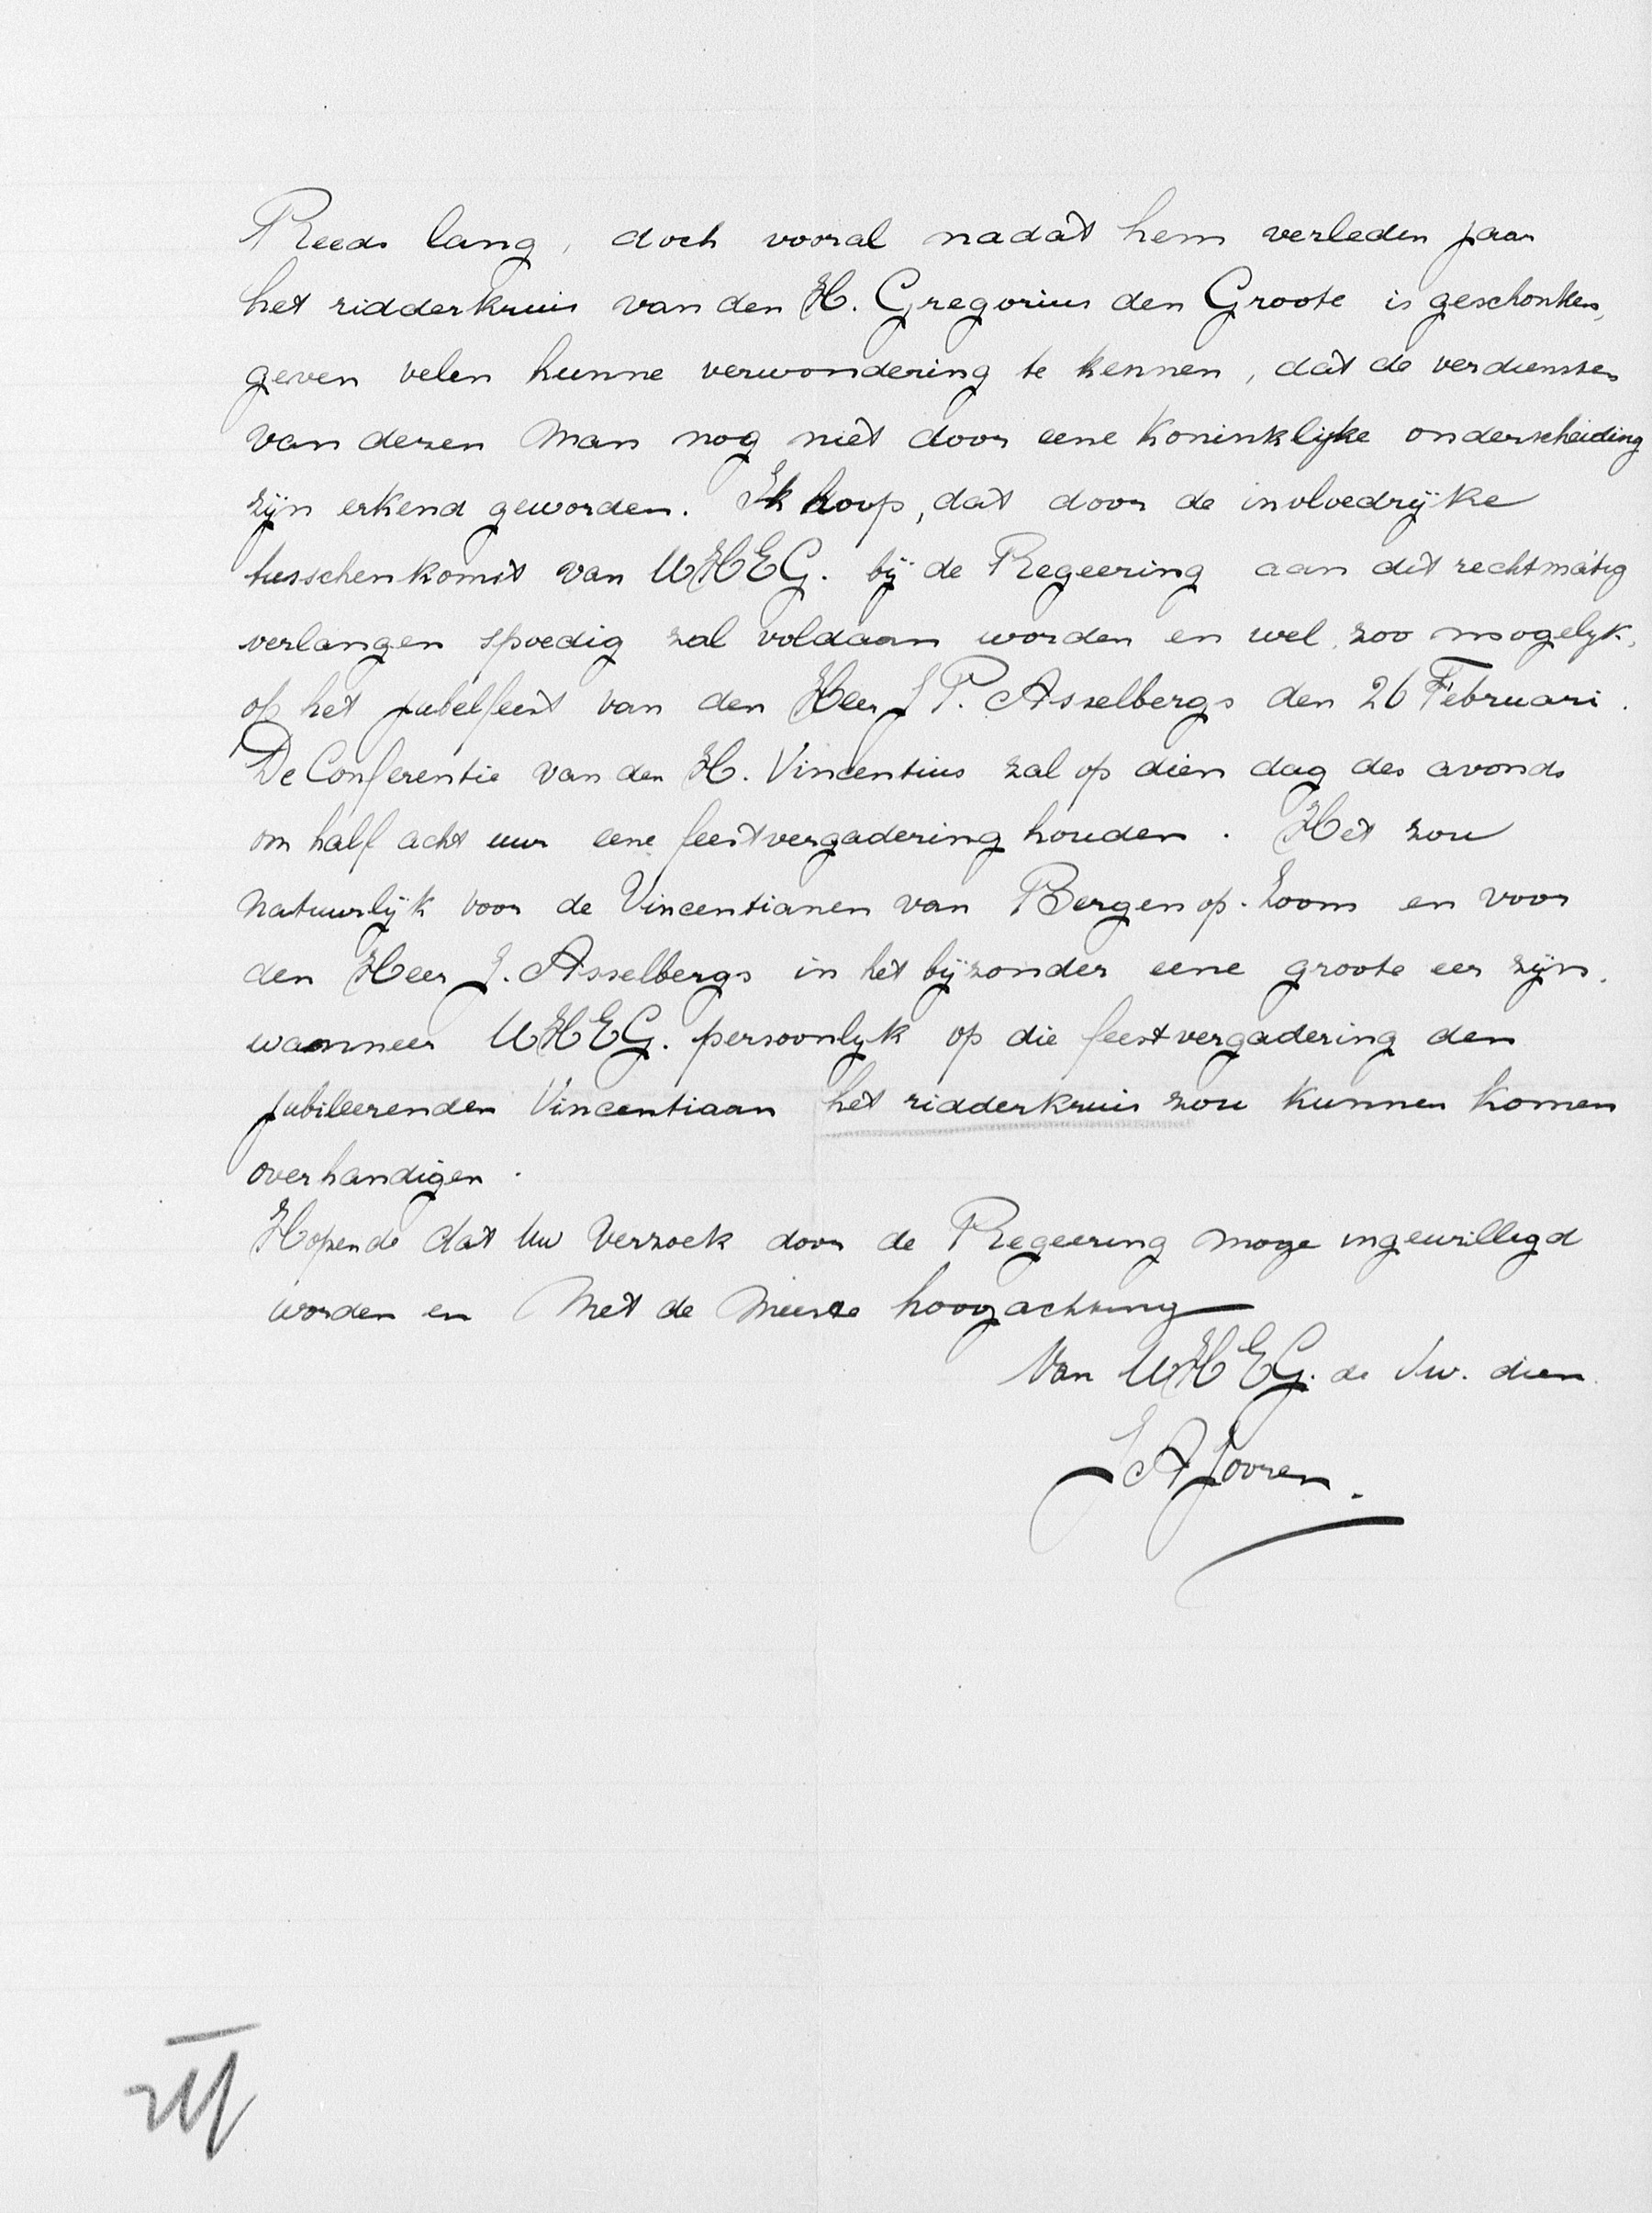 Reeds lang, doch vooral nadat hem verleden jaar
het ridderkruis van den H. Gregorius den Groote is geschonken,
geven velen hunne verwondering te kennen, dat de verdiensten
van dezen man nog niet door eene Koninklijke onderscheiding
zijn erkend geworden. Ik hoop, dat door de invloedrijke
tusschenkomst van UHEG. bij de Regeering aan dit rechtmatig
verlangen spoedig zal voldaan worden en wel, zoo mogelijk,
op het jubelfeest van den Heer J P. Asselbergs den 26 Februari.
De Conferentie van den H. Vincentius zal op dien dag des avonds
om half acht uur eene feestvergadering houden. Het zou
natuurlijk voor de Vincentianen van Bergen op-Zoom en voor
den Heer J. Asselbergs in het bijzonder eene groote eer zijn,
wanneer UHEG. persoonlijk op die feestvergadering den
jubileerenden Vincentiaan het ridderkruis zou kunnen komen
overhandigen.
Hopende dat Uw Verzoek door de Regeering moge ingewilligd
worden en Met de Meeste hoogachting
Van UHEG. de dw. dien.
J A